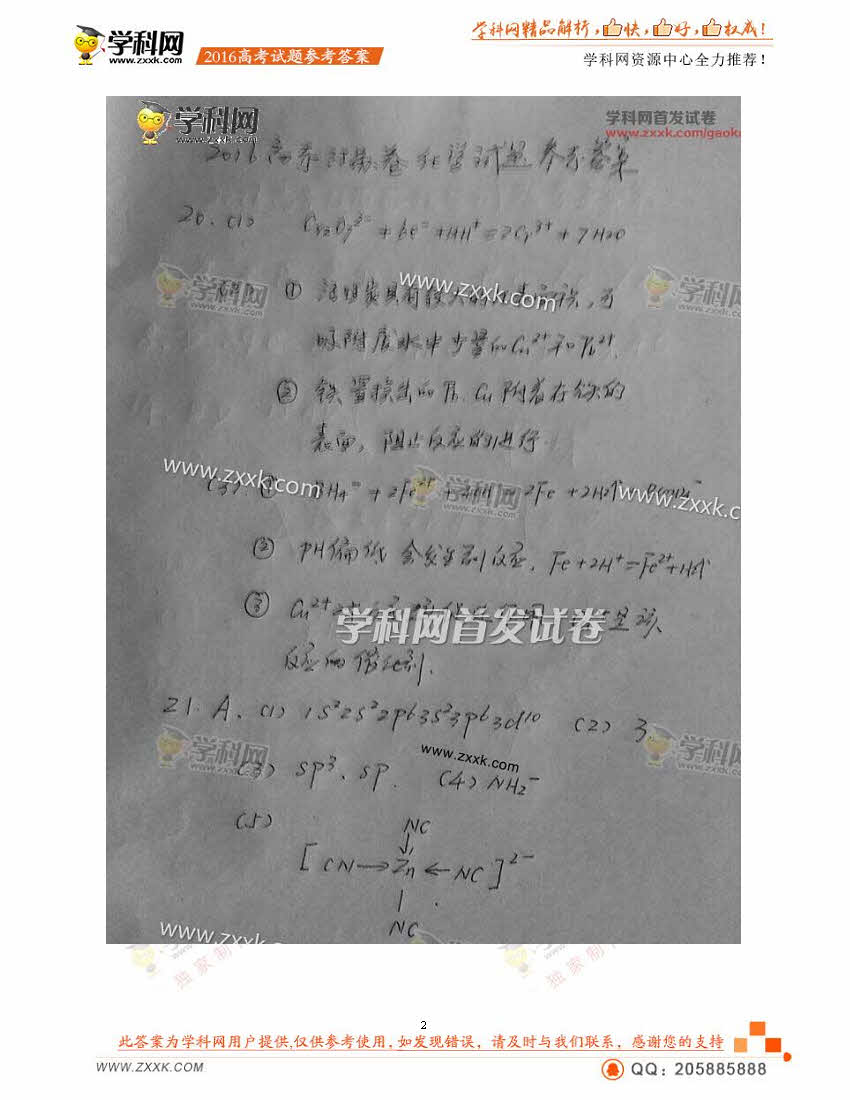 学科网
www.zxxk.com
2016高考试题参考答案
学科网精品解析，快，好，权威！
学科网资源中心全力推荐！
学科网
www.zxxk.com
学科网首发试卷
www.zxxk.com/gaok
2016高考江苏卷化学试题参考答案
20. (1) Cr2O7²⁻ + 6e⁻ + 14H⁺ = 2Cr³⁺ + 7H2O
www.zxxk.com
学科网
www.zxxk.com
吸附废水中少量的Cu²⁺和Pb²⁺.
② 铁置换出的Pb、Cu附着在铁的
表面，阻止反应的进行
www.zxxk.com
学科网
www.zxxk.com
② PH偏低会发生副反应，Fe+2H⁺=Fe²⁺+H2↑
③ Cu²⁺
学科网首发试卷
反应的催化剂.
21. A. (1) 1s²2s²2p⁶3s²3p⁶3d¹⁰ (2) 3
学科网
www.zxxk.com
www.zxxk.com
(3) sp³、sp. (4) NH2⁻
(5)
NC
↓
[CN→Zn←NC]²⁻
NC
www.zxxk.com
独家制
独家制
2
此答案为学科网用户提供,仅供参考使用，如发现错误，请及时与我们联系，感谢您的支持
WWW.ZXXK.COM
QQ：205885888